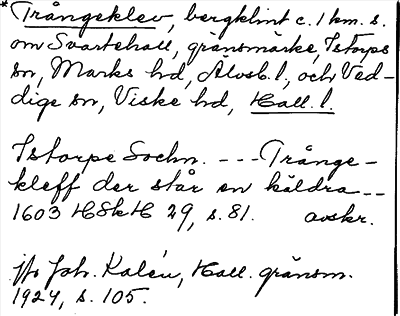 * Trångeklev, bergklint c. 1 km. s.
om Svartehall, gränsmärke, Istorps
sn, Marks hd, Älvsb. l., och Ved-
dige sn, Viske hd, Hall. l.
Istorpe Sochn. --- Trånge-
kleff der står en käldra --
1603 HSkH 29, s. 81. avskr.
jfr Joh. Kalén, Hall. gränsm.
1924, s. 105.